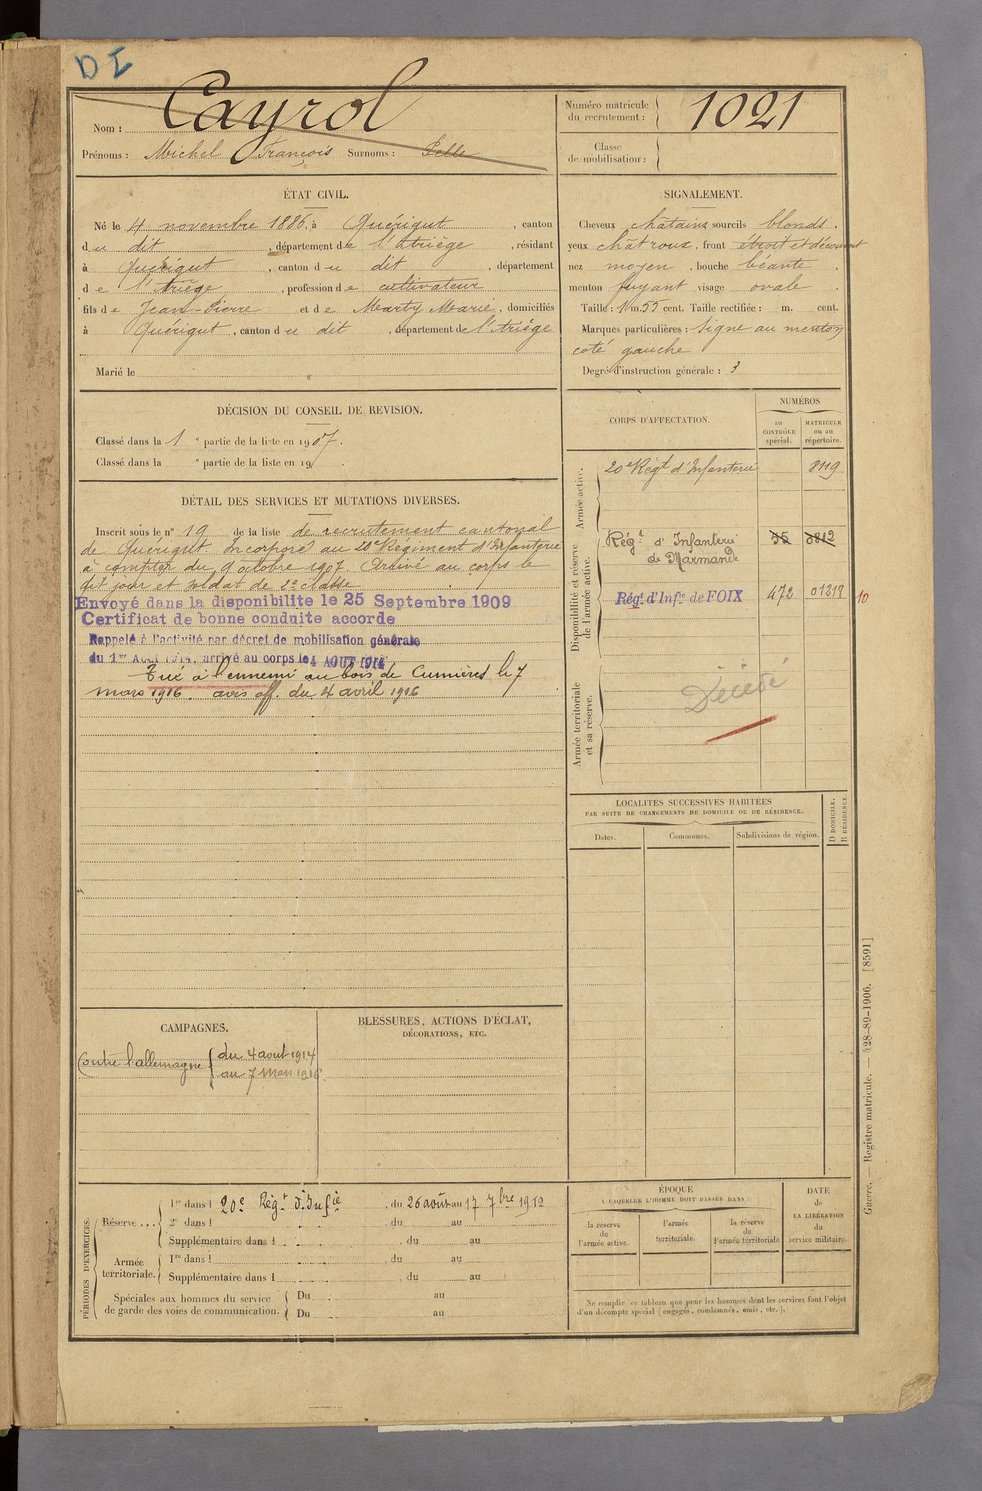 DI
Nom : Cayrol
Prénoms : Michel François Surnoms : Pelle
Numéro matricule du recrutement : 1021
Classe de mobilisation :
ÉTAT CIVIL.
Né le 4 novembre 1886, à Quérigut, canton
du dit, département de l'Ariège, résidant
à Quérigut, canton du dit, département
de l'Ariège, profession de cultivateur
fils de Jean-Pierre et de Marty Marie, domiciliés
à Quérigut, canton du dit, département de l'Ariège
Marié le
SIGNALEMENT.
Cheveux châtains sourcils blonds.
yeux chât roux, front étroit et découvert
nez moyen, bouche béante.
menton fuyant visage ovale.
Taille : 1 m. 55 cent. Taille rectifiée : m. cent.
Marques particulières : Signe au menton
coté gauche
Degré d'instruction générale : 3
DÉCISION DU CONSEIL DE REVISION.
Classé dans la 1e partie de la liste en 1907.
Classé dans la e partie de la liste en 19 .
CORPS D'AFFECTATION.
NUMÉROS
au CONTRÔLE spécial.
MATRICULE ou au répertoire.
Armée active.
20e Régt d'Infanterie 8119
Disponibilité et réserve de l'armée active.
Régt d'Infanterie de Marmande 35 3812
Régt d'Infie de FOIX 472 01319 10
Armée territoriale et sa réserve.
Décédé
DÉTAIL DES SERVICES ET MUTATIONS DIVERSES.
Inscrit sous le n° 19 de la liste de recrutement cantonal
de Quérigut. Incorporé au 20e Régiment d'Infanterie
à compter du 9 octobre 1907. Arrivé au corps le
dit jour et soldat de 2e classe
Envoyé dans la disponibilite le 25 Septembre 1909
Certificat de bonne conduite accorde
Rappelé à l'activité par décret de mobilisation générale
du 1er Août 1914, arrivé au corps le 4 AOUT 1914
Tué à l'ennemi au bois de Cumières le 7
mars 1916. avis off. du 4 avril 1916
LOCALITÉS SUCCESSIVES HABITÉES
PAR SUITE DE CHANGEMENTS DE DOMICILE OU DE RÉSIDENCE.
Dates.
Communes.
Subdivisions de région.
D DOMICILE.
R RÉSIDENCE.
CAMPAGNES.
Contre l'allemagne { du 4 aout 1914
au 7 Mars 1916
BLESSURES, ACTIONS D'ÉCLAT,
DÉCORATIONS, ETC.
PÉRIODES D'EXERCICES.
Réserve ...
1re dans l 20e Régt d'Infie, du 26 août au 17 7bre 1912
2e dans l , du au
Supplémentaire dans l , du au
Armée territoriale.
1re dans l , du au
Supplémentaire dans l , du au
Spéciales aux hommes du service de garde des voies de communication.
Du au
Du au
ÉPOQUE
À LAQUELLE L'HOMME DOIT PASSER DANS :
la réserve de l'armée active.
l'armée territoriale.
la réserve de l'armée territoriale
DATE de LA LIBÉRATION du service militaire.
Ne remplir ce tableau que pour les hommes dont les services font l'objet
d'un décompte spécial (engagés, condamnés, omis, etc.).
Guerre. — Registre matricule. — 428-89-1906. [8591]